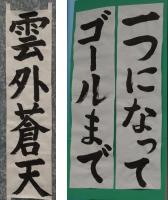 雲外蒼天
一つになって
ゴールまで